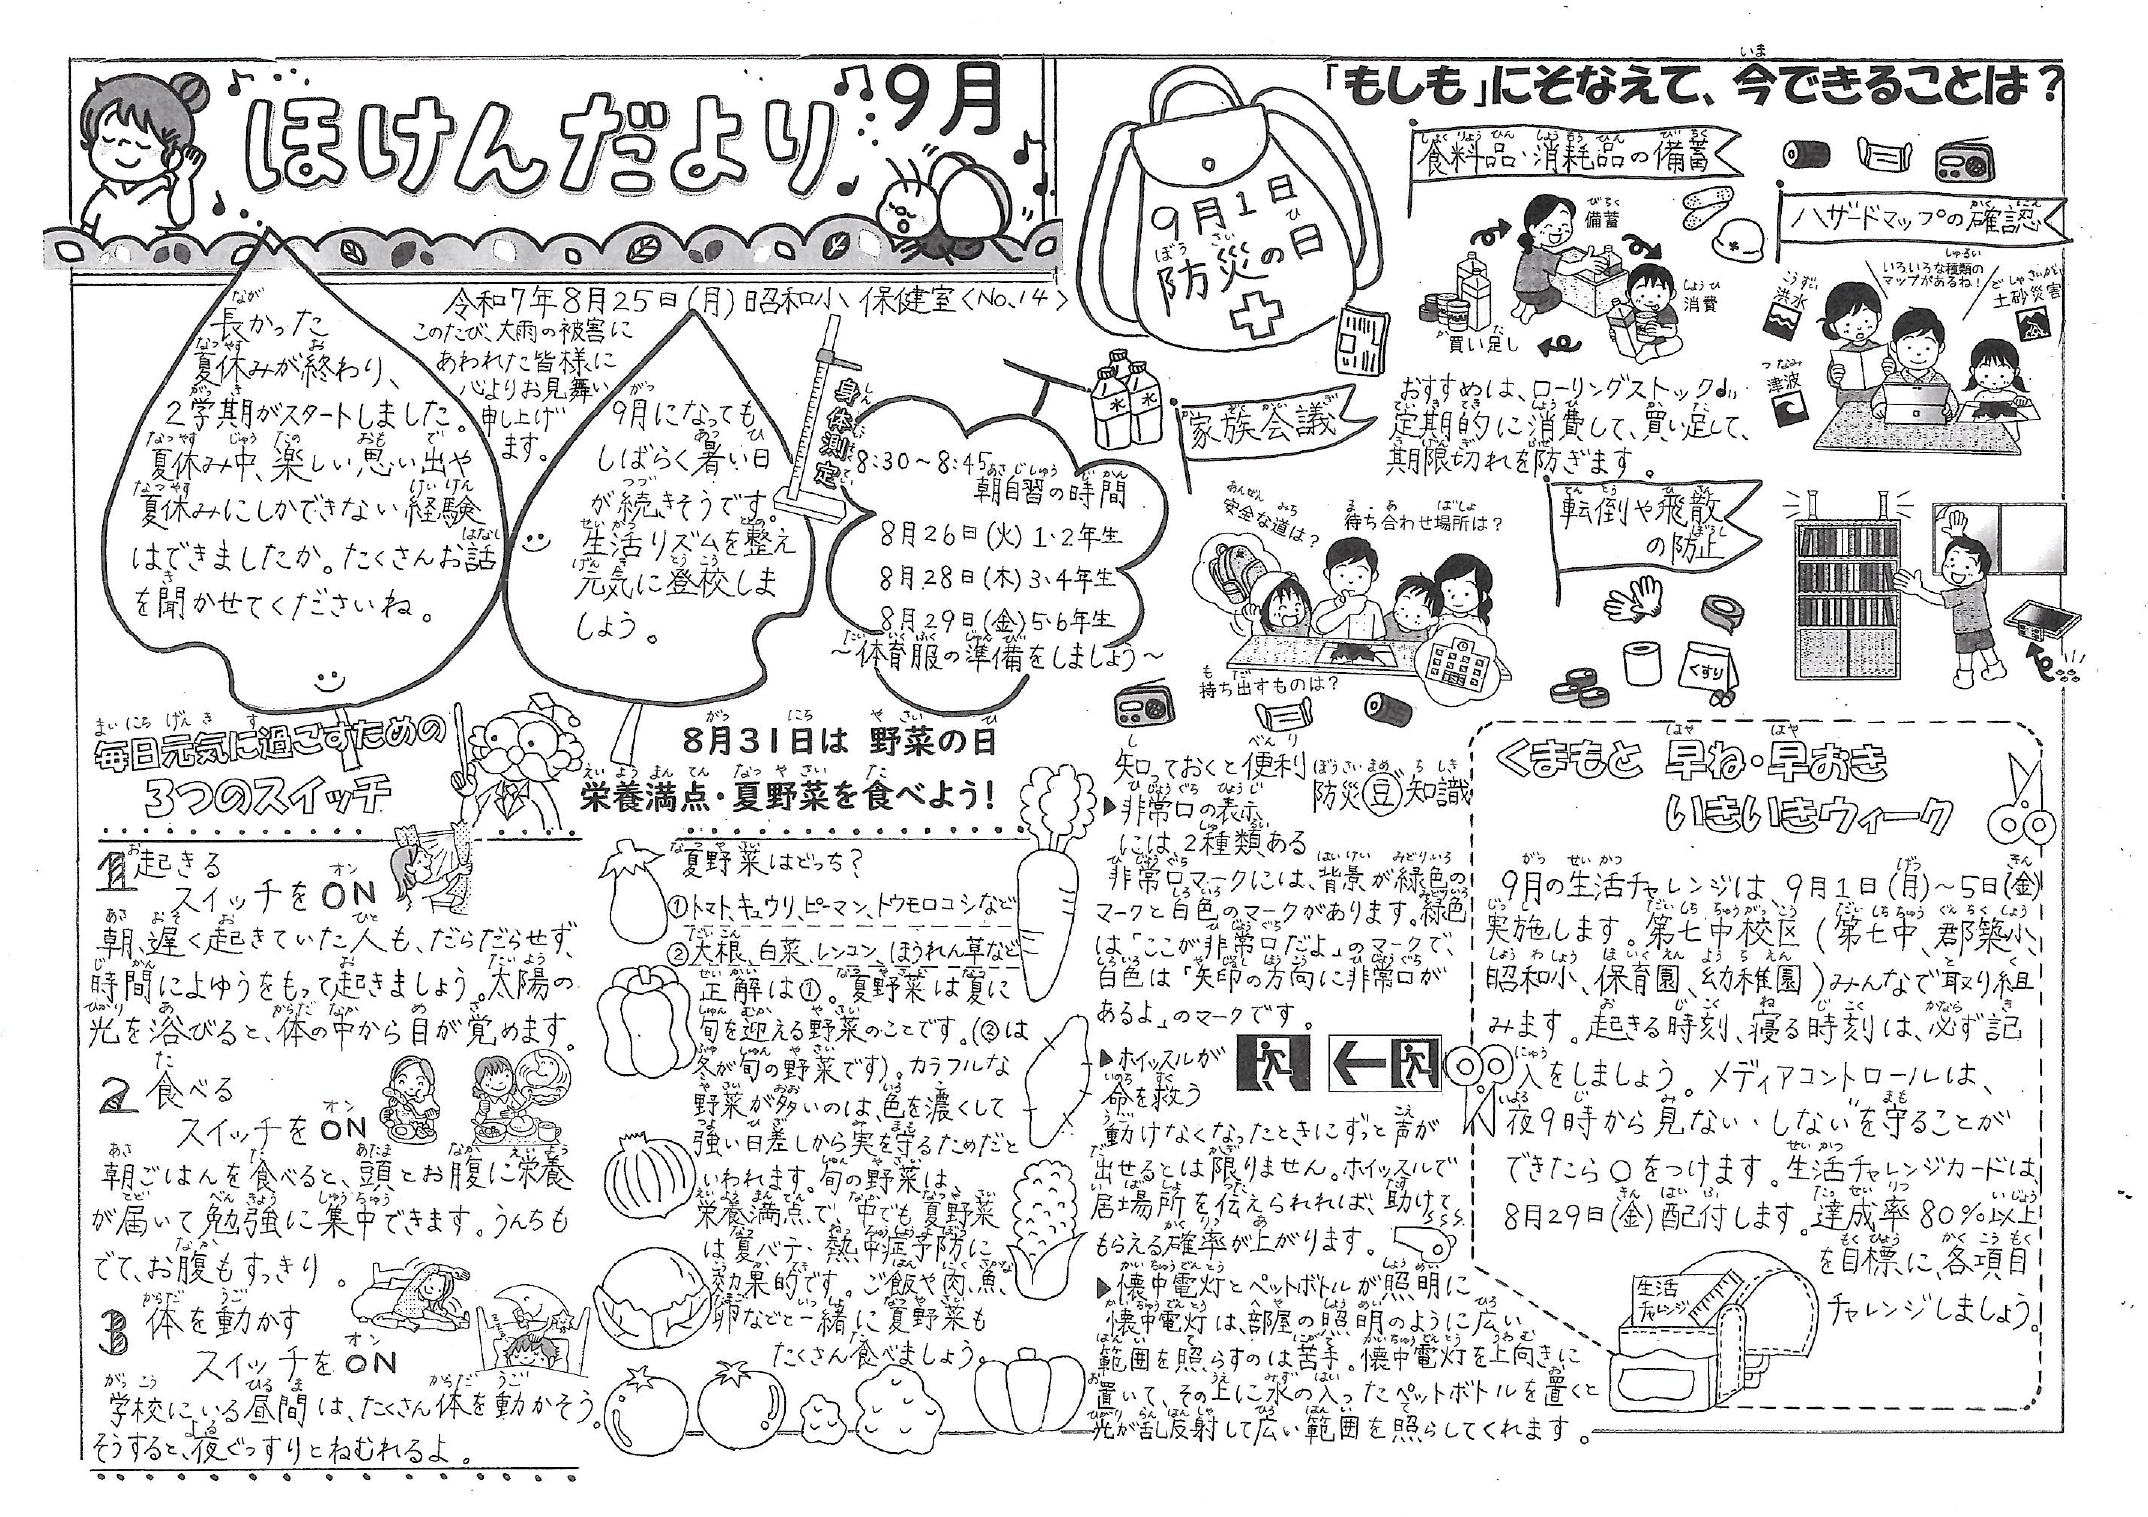 ほけんだより
9月
令和7年8月25日(月)昭和小 保健室<No.14>
このたび、大雨の被害に
あわれた皆様に
心よりお見舞い
申し上げ
ます。
長かった
夏休みが終わり、
2学期がスタートしました。
夏休み中、楽しい思い出や
夏休みにしかできない経験
はできましたか。たくさんお話
を聞かせてくださいね。
9月になっても
しばらく暑い日
が続きそうです。
生活リズムを整え
元気に登校しま
しょう。
身体測定
8:30〜8:45
朝自習の時間
8月26日(火)1・2年生
8月28日(木)3・4年生
8月29日(金)5・6年生
〜体育服の準備をしましょう〜
毎日元気に過ごすための
3つのスイッチ
1 起きる
スイッチをON
朝、遅く起きていた人も、だらだらせず、
時間によゆうをもって起きましょう。太陽の
光を浴びると、体の中から目が覚めます。
2 食べる
スイッチをON
朝ごはんを食べると、頭とお腹に栄養
が届いて勉強に集中できます。うんちも
でて、お腹もすっきり。
3 体を動かす
スイッチをON
学校にいる昼間は、たくさん体を動かそう。
そうすると、夜ぐっすりとねむれるよ。
8月31日は 野菜の日
栄養満点・夏野菜を食べよう!
夏野菜はどっち?
①トマト、キュウリ、ピーマン、トウモロコシなど
②大根、白菜、レンコン、ほうれん草など
正解は①。夏野菜は夏に
旬を迎える野菜のことです。(②は
冬が旬の野菜です)。カラフルな
野菜が多いのは、色を濃くして
強い日差しから実を守るためだと
いわれます。旬の野菜は、
栄養満点で、中でも夏野菜
は夏バテ・熱中症予防に
効果的です。ご飯や肉、魚、
卵などと一緒に夏野菜も
たくさん食べましょう。
「もしも」にそなえて、今できることは?
9月1日
防災の日
食料品・消耗品の備蓄
備蓄
消費
買い足し
おすすめは、ローリングストック♩
定期的に消費して、買い足して、
期限切れを防ぎます。
水
ハザードマップの確認
洪水
いろいろな種類の
マップがあるね!
土砂災害
津波
家族会議
安全な道は?
待ち合わせ場所は?
持ち出すものは?
転倒や飛散
の防止
くすり
知っておくと便利
防災豆知識
▶非常口の表示
には2種類ある
非常口マークには、背景が緑色の
マークと白色のマークがあります。緑色
は「ここが非常口だよ」のマークで、
白色は「矢印の方向に非常口が
あるよ」のマークです。
▶ホイッスルが
命を救う
動けなくなったときにずっと声が
出せるとは限りません。ホイッスルで
居場所を伝えられれば、助けて
もらえる確率が上がります。
▶懐中電灯とペットボトルが照明に
懐中電灯は、部屋の照明のように広い
範囲を照らすのは苦手。懐中電灯を上向きに
置いて、その上に水の入ったペットボトルを置くと
光が乱反射して広い範囲を照らしてくれます。
くまもと 早ね・早おき
いきいきウィーク
9月の生活チャレンジは、9月1日(月)〜5日(金)
実施します。第七中校区(第七中、郡築小、
昭和小、保育園、幼稚園)みんなで取り組
みます。起きる時刻、寝る時刻は、必ず記
入をしましょう。メディアコントロールは、
"夜9時から見ない・しない"を守ることが
できたら○をつけます。生活チャレンジカードは、
8月29日(金)配付します。達成率80%以上
を目標に、各項目
チャレンジしましょう。
生活
チャレンジ